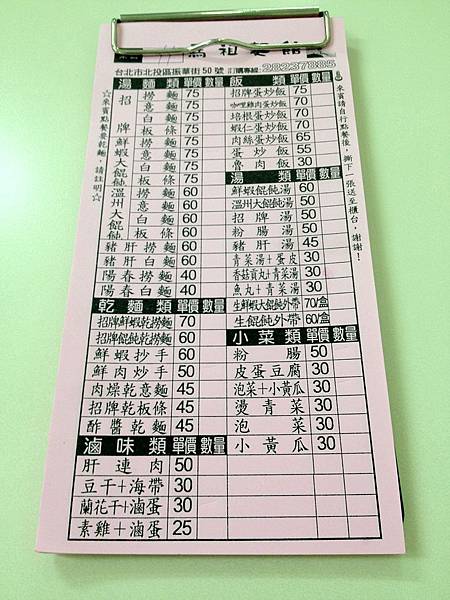 台北市北投區振華街50號 訂購專線: 28237885
湯麵類 單價 數量
招牌
撈麵 75
意麵 75
白麵 75
板條 75
鮮蝦大餛飩
撈麵 75
意麵 75
白麵 75
板條 75
溫州大餛飩
撈麵 60
意麵 60
白麵 60
板條 60
豬肝撈麵 60
豬肝白麵 60
陽春撈麵 40
陽春白麵 40
乾麵類 單價 數量
招牌鮮蝦乾撈麵 70
招牌餛飩乾撈麵 60
鮮蝦抄手 60
鮮肉抄手 50
肉燥乾意麵 45
招牌乾板條 45
酢醬乾麵 45
滷味類 單價 數量
肝連肉 50
豆干+海帶 30
蘭花干+滷蛋 30
素雞+滷蛋 25
飯類 單價 數量
招牌蛋炒飯 75
咖哩雞肉蛋炒飯 70
培根蛋炒飯 70
蝦仁蛋炒飯 70
肉絲蛋炒飯 65
蛋炒飯 55
魯肉飯 30
湯類 單價 數量
鮮蝦餛飩湯 60
溫州大餛飩湯 50
招牌湯 50
粉腸湯 50
豬肝湯 45
青菜湯+蛋皮 30
香菇貢丸+青菜湯 30
魚丸+青菜湯 30
生鮮蝦大餛飩外帶 70/盒
生餛飩外帶 60/盒
小菜類 單價 數量
粉腸 50
皮蛋豆腐 30
泡菜+小黃瓜 30
燙青菜 30
泡菜 30
小黃瓜 30
☆來賓點餐要乾麵,請註明☆
來賓請自行點餐後,撕下一張送至櫃台,謝謝!